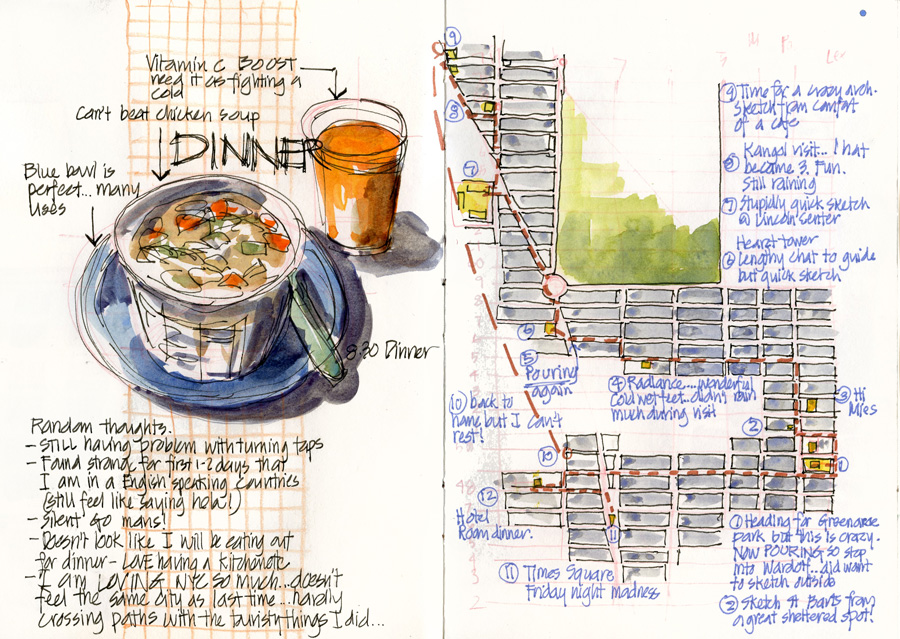 Vitamin C BOOST
need it as fighting a
cold
Can't beat chicken soup
DINNER
Blue bowl is
perfect... many
uses
8.30 Dinner
Random thoughts.
- Still having problem with turning taps
- Found strange for first 1-2 days that
I am in a English speaking countries
(still feel like saying hola!)
- 'Silent' Go mans!
- Doesn't look like I will be eating out
for dinner - LOVE having a kitchenette
- I am LOVING NYC so much... doesn't
feel the same city as last time... hardly
crossing paths with the touristy things I did...
9
8
7
6
5
Pouring
again
9 Time for a crazy arch.
sketch from comfort
of a cafe
Kangol visit... 1 hat
8 became 3. Fun.
Still raining
7 Stupidly quick sketch
@ Lincoln Center
Hearst tower
6 lengthy chat to guide
but quick sketch
4 Radiance.... wonderful
Cold wet feet... didn't rain
much during visit
3 Hi
Miles
2
1
10 back to
home but I can't
rest!
10
12
Hotel
Room dinner.
11
11 Times Square
Friday night madness
1 Heading for Greenacre
park but this is crazy.
NOW POURING so stop
into Wardoff... did want
to sketch outside
2 Sketch St Barts from
a great sheltered spot!